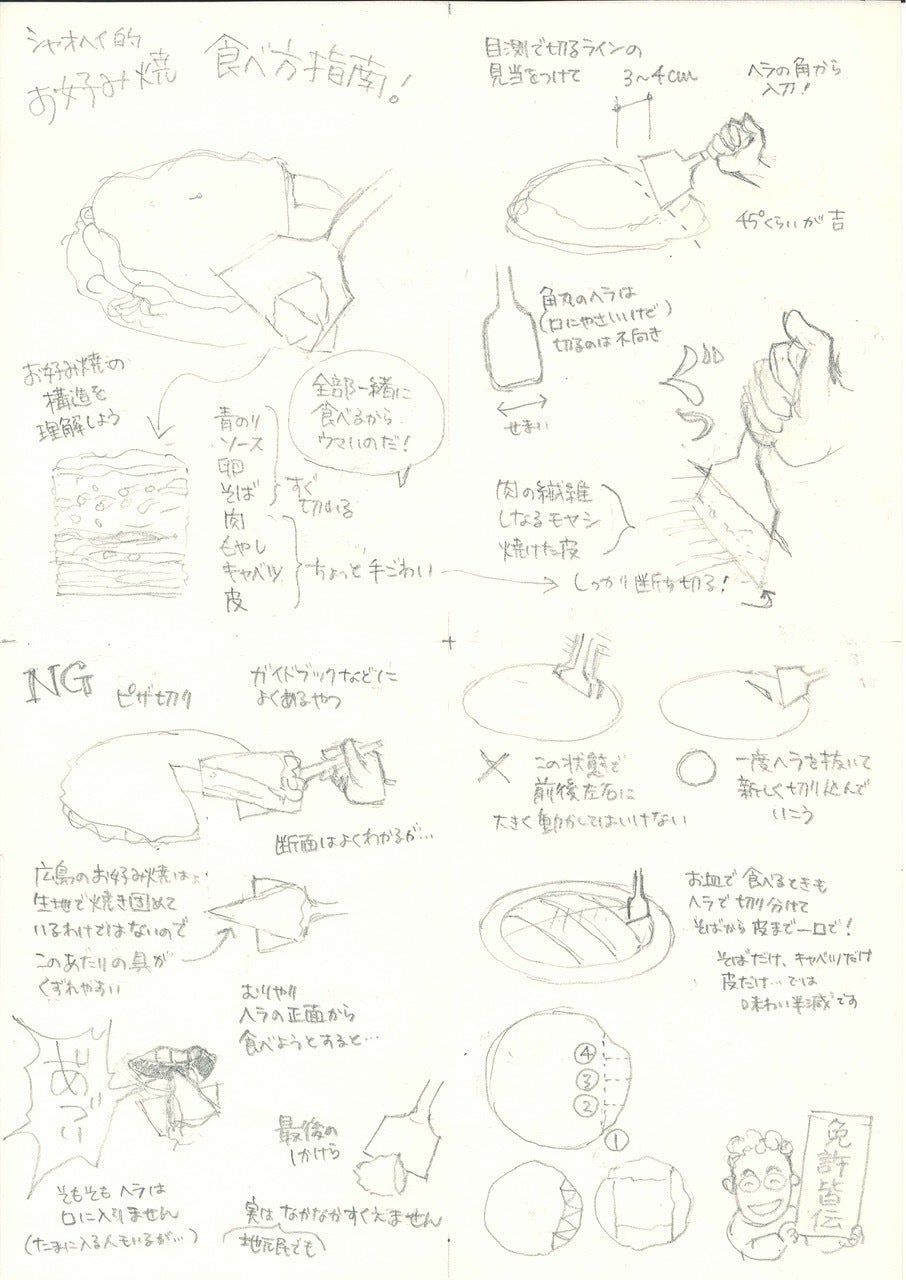 シャオヘイ的
お好み焼 食べ方指南!
お好み焼の
構造を
理解しよう
青のり
ソース
卵
そば
すぐ
切れる
肉
もやし
キャベツ
皮
ちょっと手ごわい
全部一緒に
食べるから
ウマいのだ!
目測で切るラインの
見当をつけて
3〜4cm
ヘラの角から
入刀!
45°くらいが吉
角丸のヘラは
(口にやさしいけど)
切るのは不向き
せまい
肉の繊維
しなるモヤシ
焼けた皮
しっかり断ち切る!
NG
ピザ切り
ガイドブックなどに
よくあるやつ
断面はよくわかるが…
広島のお好み焼は
生地で焼き固めて
いるわけではないので
このあたりの具が
くずれやすい
むりやり
ヘラの正面から
食べようとすると…
あ゛づい
そもそもヘラは
口に入りません
(たまに入る人もいるが…)
最後の
かけら
実はなかなかすくえません
(地元民でも)
×
この状態で
前後左右に
大きく動かしてはいけない
○
一度ヘラを抜いて
新しく切り込んで
いこう
お皿で食べるときも
ヘラで切り分けて
そばから皮まで一口で!
そばだけ、キャベツだけ
皮だけ…では
味わい半減です
④
③
②
①
免許皆伝